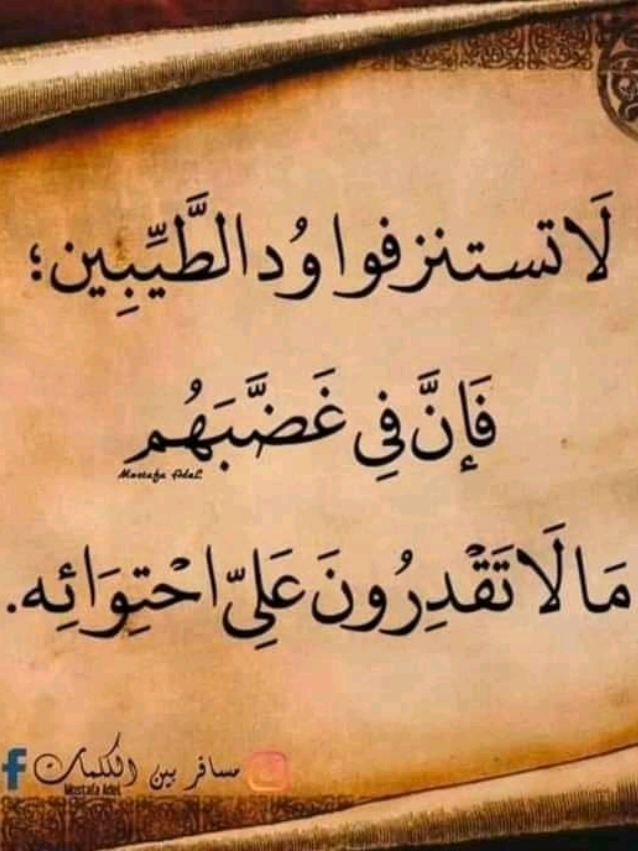 لَا تستنزفوا وُد الطَّيِّبِين؛
فَإِنَّ فِي غَضَّبَهُم
Mostafa Adel
مَا لَا تَقْدِرُونَ عَلِىّ احْتِوَائِه.
مسافر بين الكلمات
Mostafa Adel